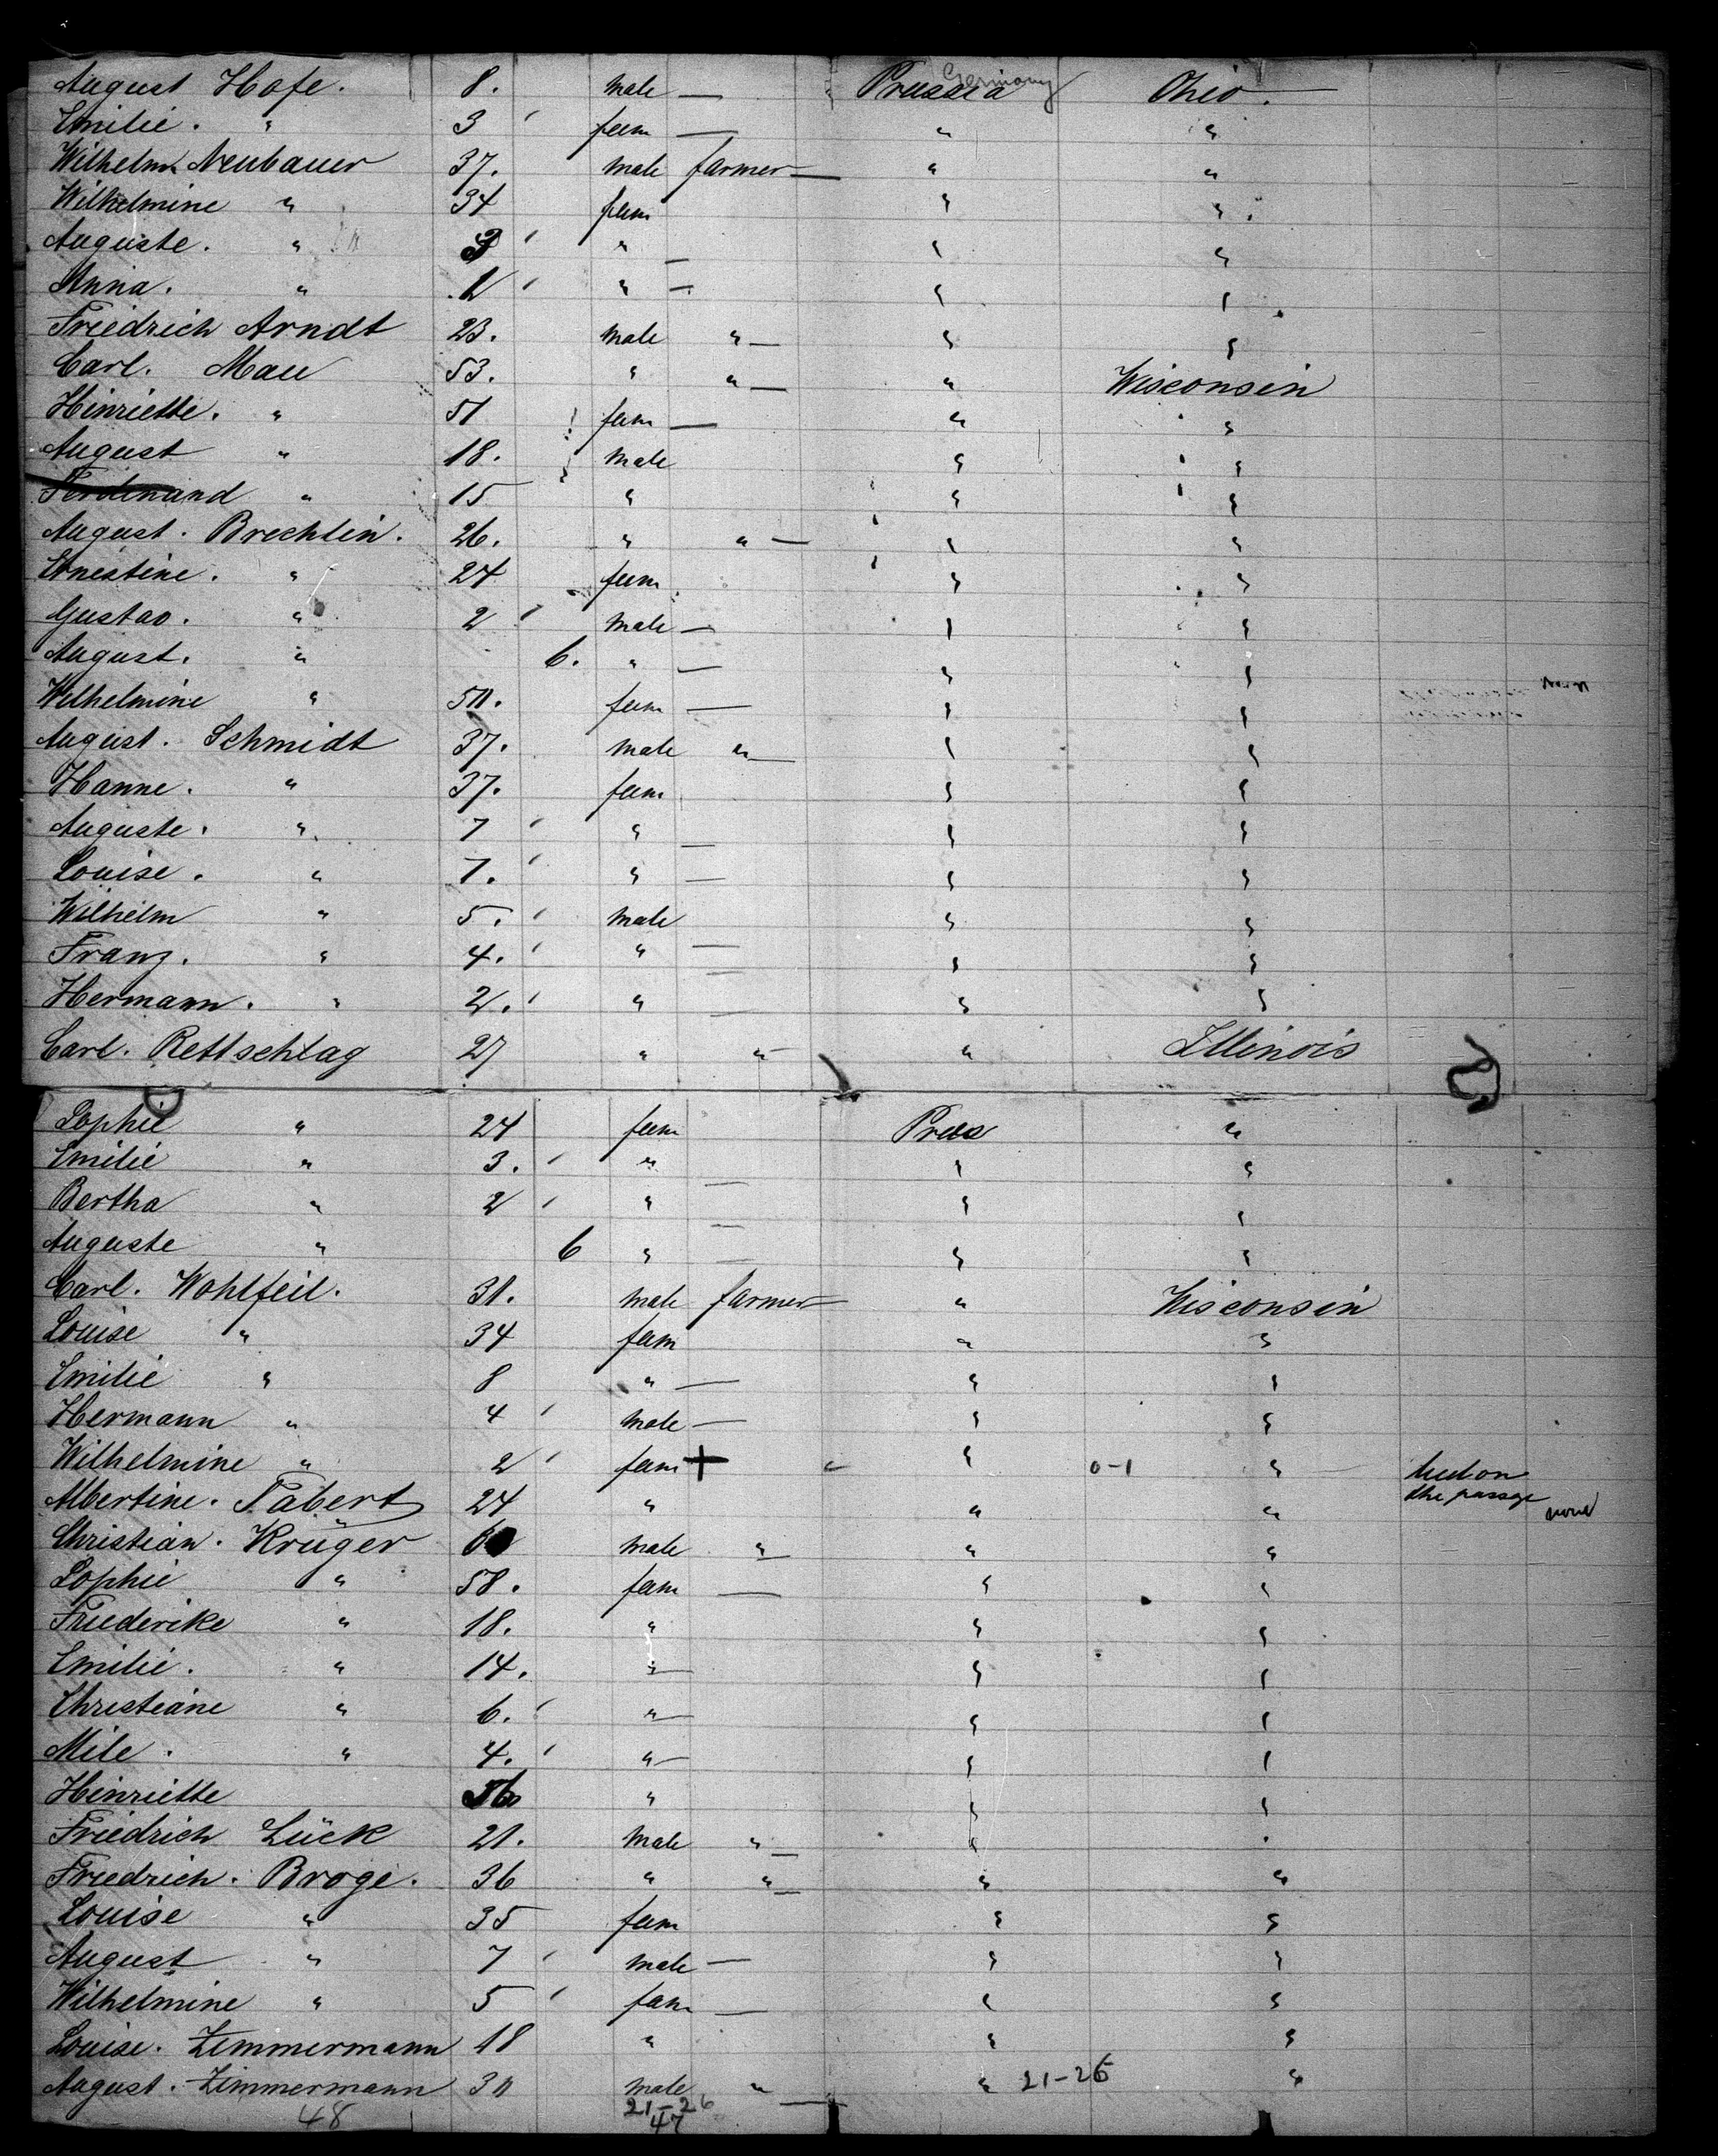 Germany
August Hofe. 8. male — Prussia Ohio.
Emilie. " 3 ' fem — " "
Wilhelm Neubauer 37. male farmer — " "
Wilhelmine " 34 fem " "
Auguste. " ' " — " "
Anna. " ' " — " "
Friedrich Arndt 23. male " — " "
Carl. Mau 53. " " — " Wisconsin
Hinriette. " 51 fem — " "
August " 18. male " "
Ferdinand " 15 " " "
August. Brechlin. 26. " " — " "
Ernestine. " 24 fem " "
Gustav. " 2 ' male — " "
August. " 6. " — " "
Wilhelmine " 50. fem — " "
August. Schmidt 37. male " — " "
Hanne. " 37. fem " "
Auguste. " 7 ' " — " "
Louise. " 7. ' " — " "
Wilhelm " 5. ' male " "
Franz. " 4. ' " — " "
Hermann. " 2. ' " — " "
Carl. Rettschlag 27 " " " Illinois
Sophie " 24 fem Prus "
Emilie " 3. ' " — " "
Bertha " 2 ' " — " "
Auguste " 6 " — " "
Carl. Wohlfeil. 31. male farmer — " Wisconsin
Louise " 34 fem " "
Emilie " 8 " — " "
Hermann " 4 ' male — " "
Wilhelmine " 2 ' fem + " " 0-1 " died on
the passage
Albertine. Tabert 24 " " " none
Christian. Krüger male " — " "
Sophie " 58. fem — " "
Friederike " 18. " " "
Emilie. " 14. " — " "
Christiane " 6. ' " — " "
Mile. " 4. ' " — " "
Hinriette " " "
Friedrich Lück 21. male " — " "
Friedrich. Broge. 36 " " — " "
Louise " 35 fem " "
August " 7 ' male — " "
Wilhelmine " 5 ' fem — " "
Louise. Zimmermann 18 " " "
August. Zimmermann 30 male " — " 21-26 "
48 21-26
47